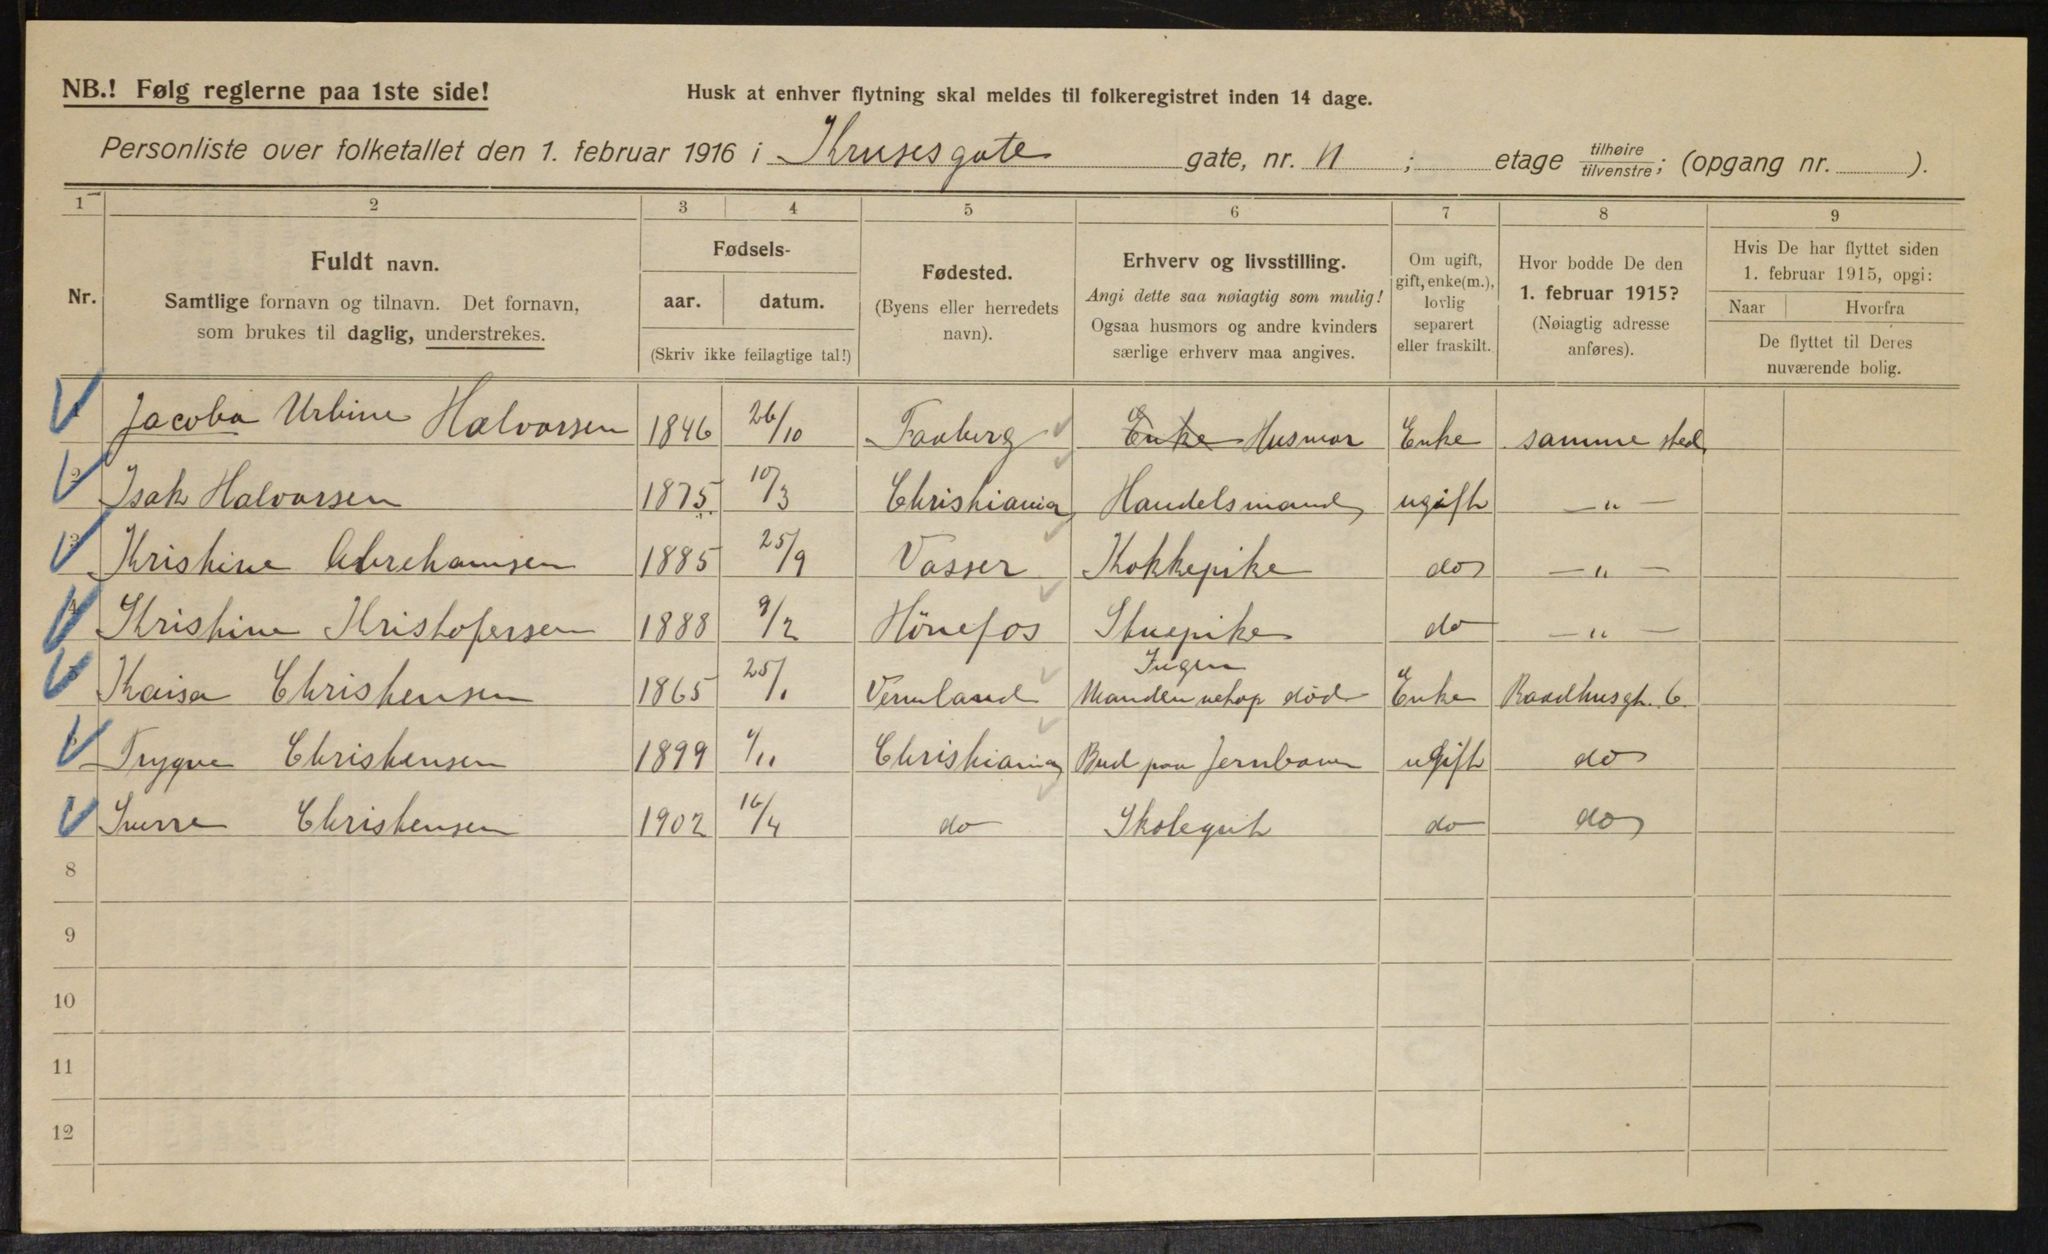 NB.! Følg reglerne paa 1ste side!
Husk at enhver flytning skal meldes til folkeregistret inden 14 dage.
Personliste over folketallet den 1. februar 1916 i Krusesgate gate, nr. 11 ; etage tilhøire/tilvenstre; (opgang nr. ).
1 2 3 4 5 6 7 8 9
Nr.
Fuldt navn.
Samtlige fornavn og tilnavn. Det fornavn,
som brukes til daglig, understrekes.
Fødsels-
aar. datum.
(Skriv ikke feilagtige tal!)
Fødested.
(Byens eller herredets
navn).
Erhverv og livsstilling.
Angi dette saa nøiagtig som mulig!
Ogsaa husmors og andre kvinders
særlige erhverv maa angives.
Om ugift,
gift, enke(m.),
lovlig
separert
eller fraskilt.
Hvor bodde De den
1. februar 1915?
(Nøiagtig adresse
anføres).
Hvis De har flyttet siden
1. februar 1915, opgi:
Naar Hvorfra
De flyttet til Deres
nuværende bolig.
1 Jacoba Urbine Halvorsen 1846 26/10 Faaberg Enke Husmor Enke samme sted
2 Isak Halvorsen 1875 10/3 Christiania Handelsmand ugift — " —
3 Kristine Abrehamsen 1885 25/9 Vasser Kokkepike do — " —
4 Kristine Kristofersen 1888 9/2 Hönefos Stuepike do — " —
5 Kaisa Christensen 1865 25/1 Vermland Ingen Manden netop død Enke Raadhusgt. 6.
6 Trygve Christensen 1899 4/11 Christiania Bud paa Jernbanen ugift do
7 Sverre Christensen 1902 16/4 do Skolegut do do
8
9
10
11
12